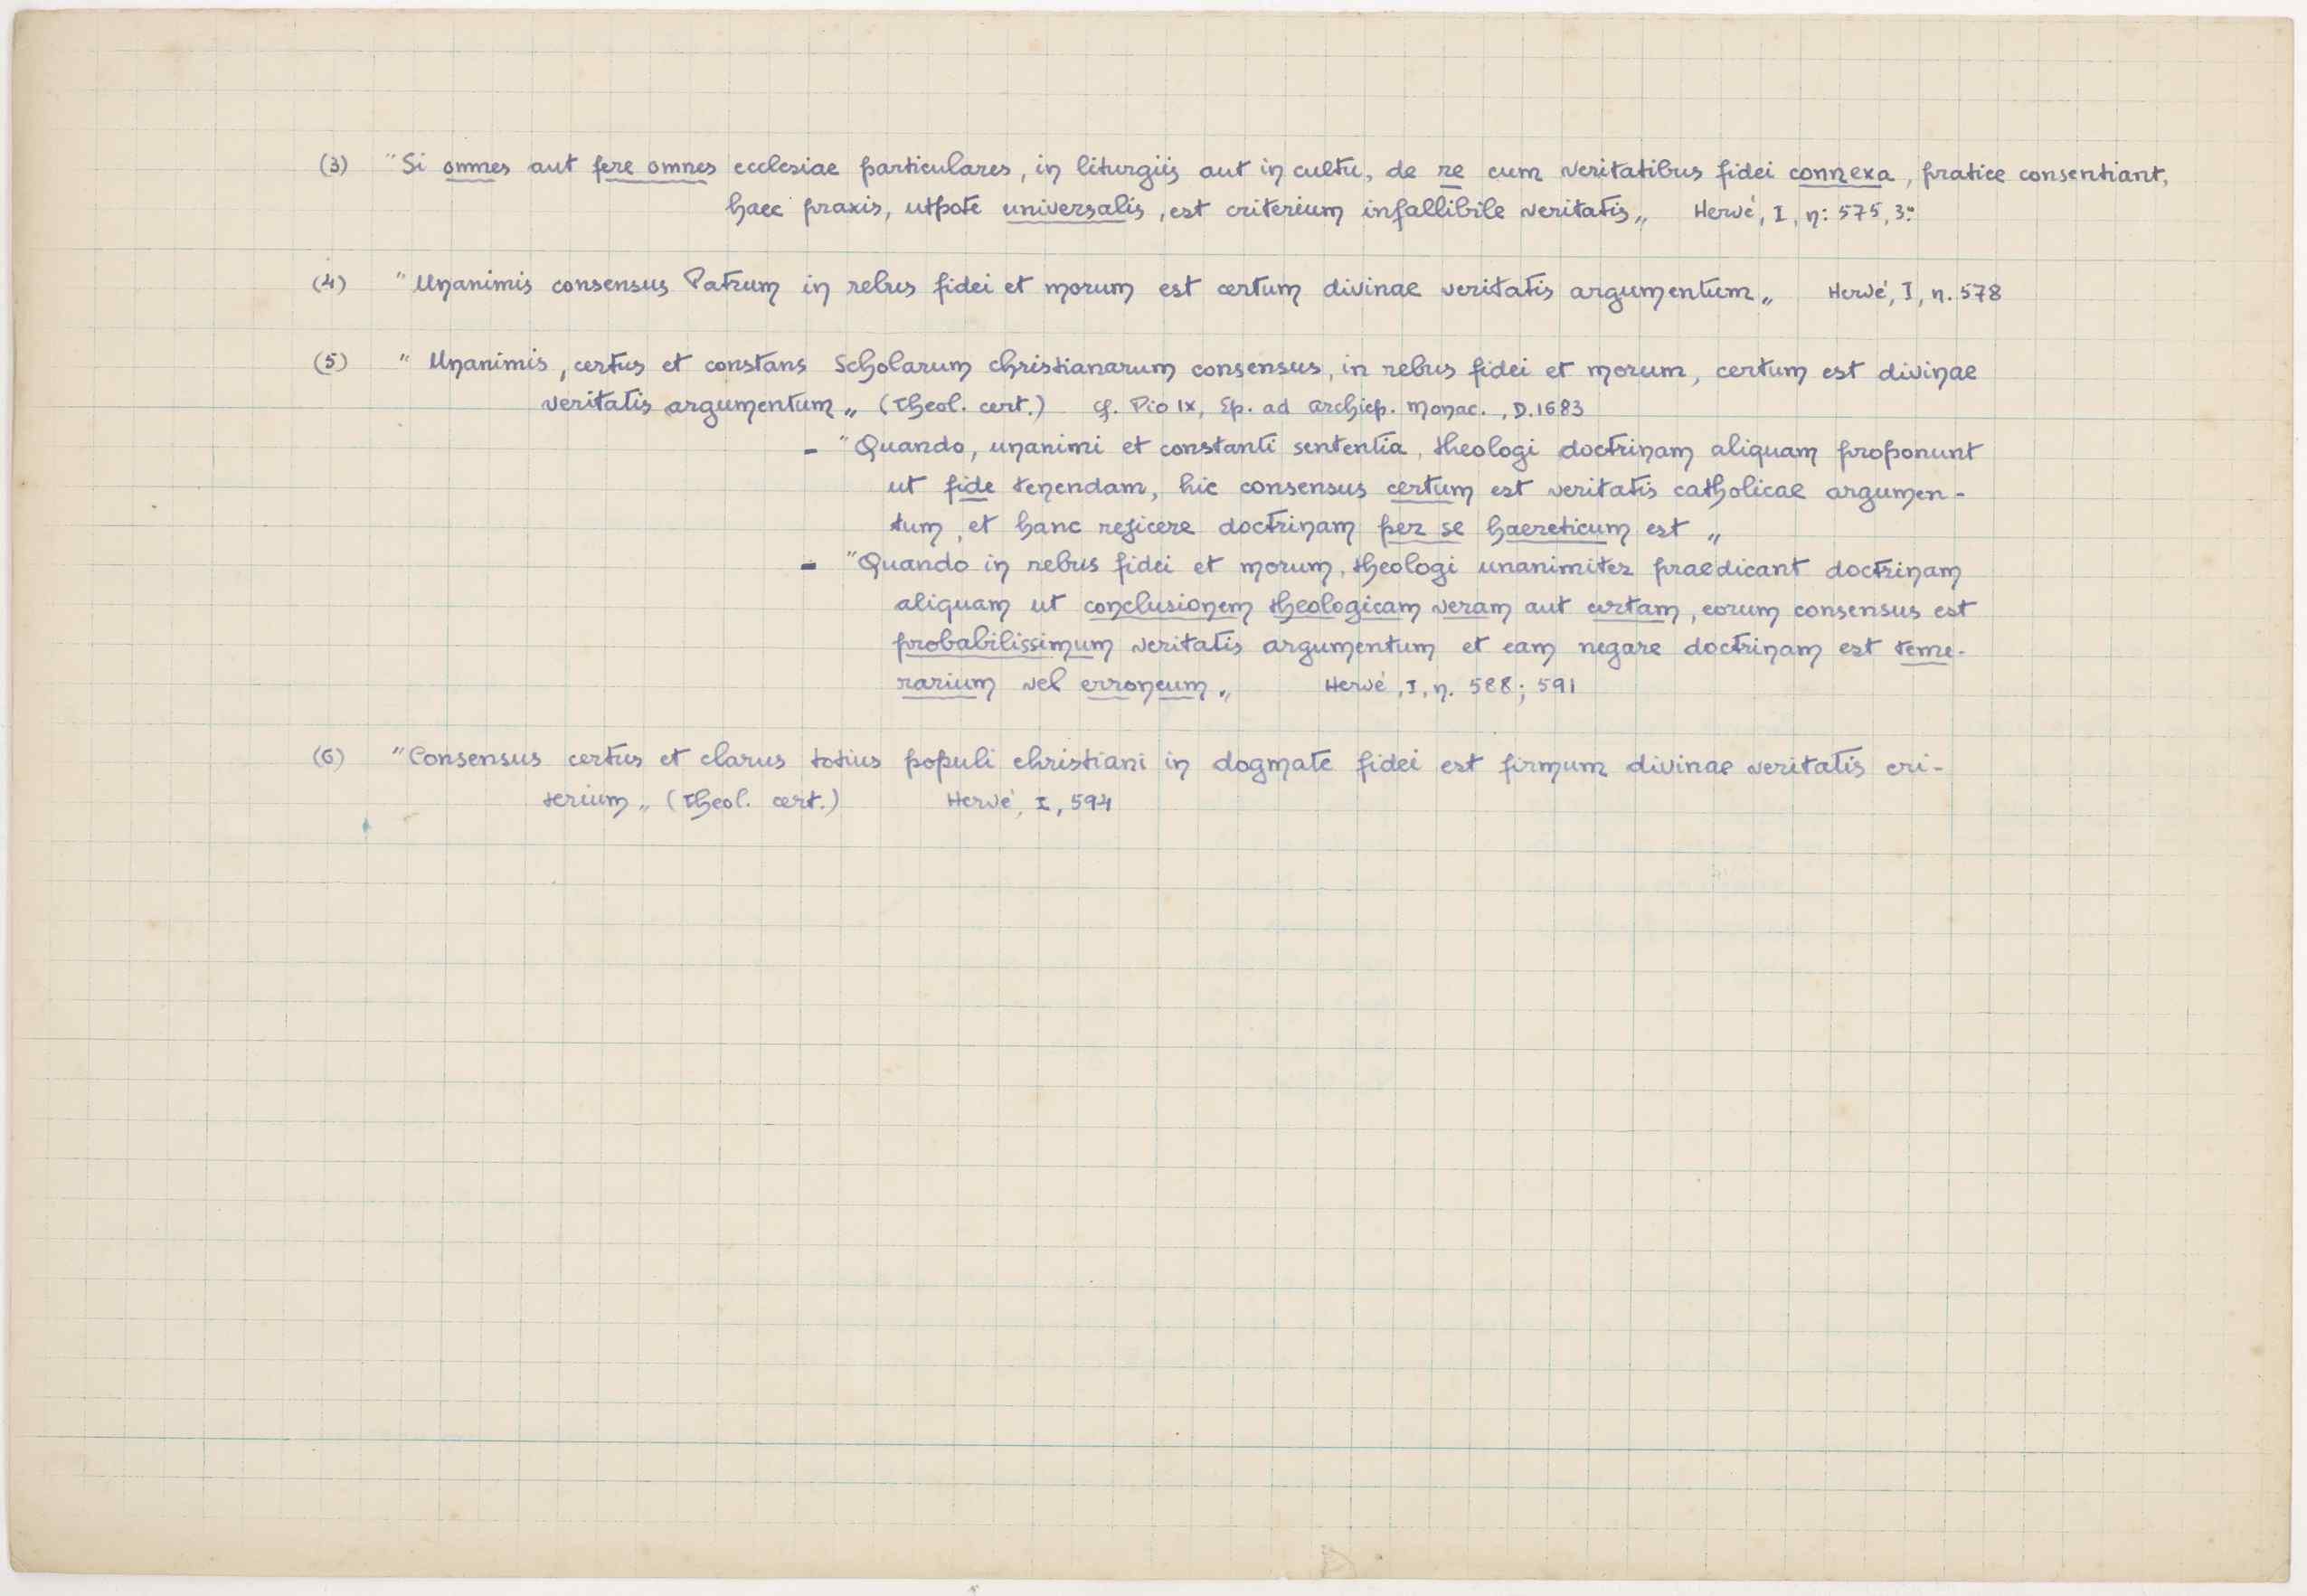 (3) "Si omnes aut fere omnes ecclesiae particulares, in liturgiis aut in cultu, de re cum veritatibus fidei connexa, pratice consentiant,
haec praxis, utpote universalis, est criterium infallibile veritatis„ Hervé, I, n: 575, 3º
(4) "Unanimis consensus Patrum in rebus fidei et morum est certum divinae veritatis argumentum„ Hervé, I, n. 578
(5) "Unanimis, certus et constans Scholarum christianarum consensus, in rebus fidei et morum, certum est divinae
veritatis argumentum„ (Theol. cert.) cf. Pio IX, Ep. ad Archiep. Monac., D.1683
- "Quando, unanimi et constanti sententia, theologi doctrinam aliquam proponunt
ut fide tenendam, hic consensus certum est veritatis catholicae argumen-
tum, et hanc rejicere doctrinam per se haereticum est „
- "Quando in rebus fidei et morum, theologi unanimiter praedicant doctrinam
aliquam ut conclusionem theologicam veram aut certam, eorum consensus est
probabilissimum veritatis argumentum et eam negare doctrinam est teme-
rarium vel erroneum„ Hervé, I, n. 588; 591
(6) "Consensus certus et clarus totius populi christiani in dogmate fidei est firmum divinae veritatis cri-
terium„ (Theol. cert.) Hervé, I, 594